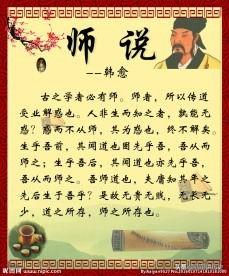 师 说
--韩愈
古之学者必有师。师者，所以传道
受业解惑也。人非生而知之者，孰能无
惑？惑而不从师，其为惑也，终不解矣。
生乎吾前，其闻道也固先乎吾，吾从而
师之；生乎吾后，其闻道也亦先乎吾，
吾从而师之。吾师道也，夫庸知其年之
先后生于吾乎？是故无贵无贱，无长无
少，道之所存，师之所存也。
昵图网
www.nipic.com